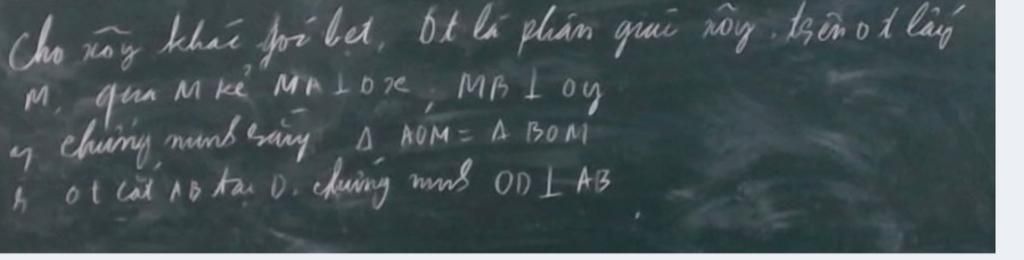 Cho xôy khác góc bẹt. Ot là phân giác xôy. trên ot lấy
M, qua M kẻ MA ⊥ Ox, MB ⊥ Oy
a, chứng minh rằng Δ AOM = Δ BOM
b, ot cắt AB tại D. chứng minh OD ⊥ AB